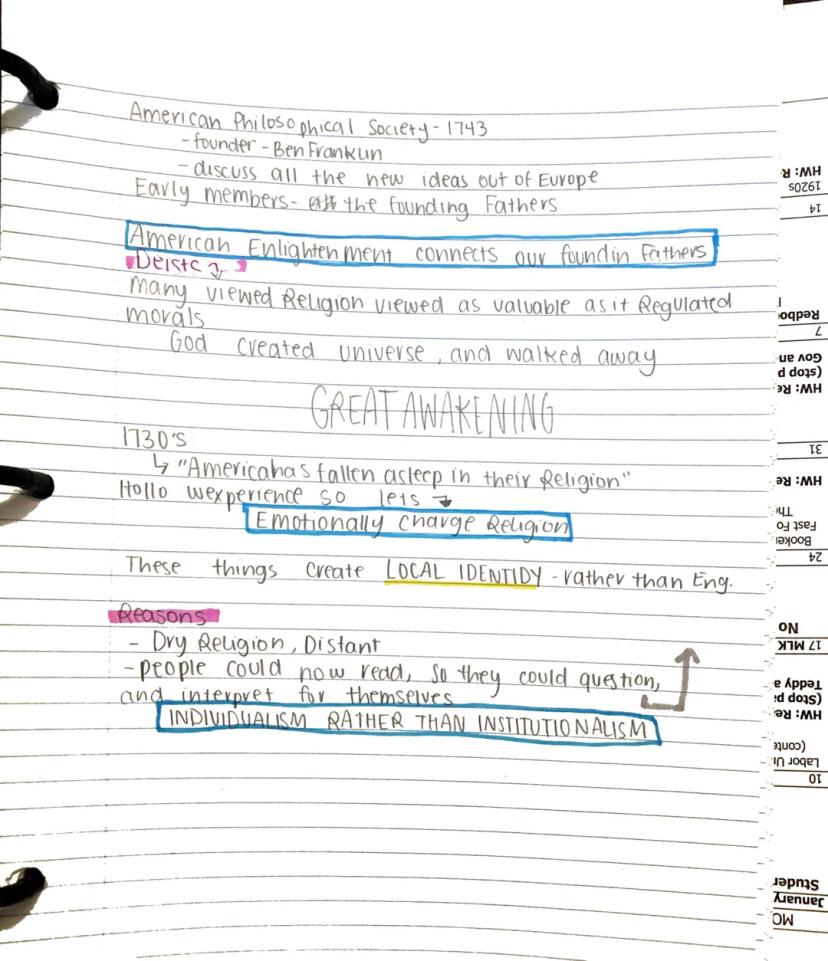 American Philosophical Society - 1743
- founder - Ben Franklin
- discuss all the new ideas out of Europe
Early members - the founding Fathers
American Enlightenment connects our foundin Fathers
many viewed Religion viewed as valuable as it Regulated
morals
God created universe, and walked away
GREAT AWAKENING
1730's
↳ "America has fallen asleep in their Religion"
Hollo wexperience so lets
Emotionally Charge Religion
These things create LOCAL IDENTIDY - rather than Eng.
Reasons
- Dry Religion, Distant
- people could now read, so they could question,
and interpret for themselves
INDIVIDUALISM RATHER THAN INSTITUTIONALISM
HW: R
1920s
14
Redboo
7
Gov an
(stop p
HW: Re
31
HW: Re
Thi
Fast Fo
Booker
24
No
17 MLK
Teddy a
(Stop pa
HW: Re
(conte
Labor Un
10
Studen
January
MO